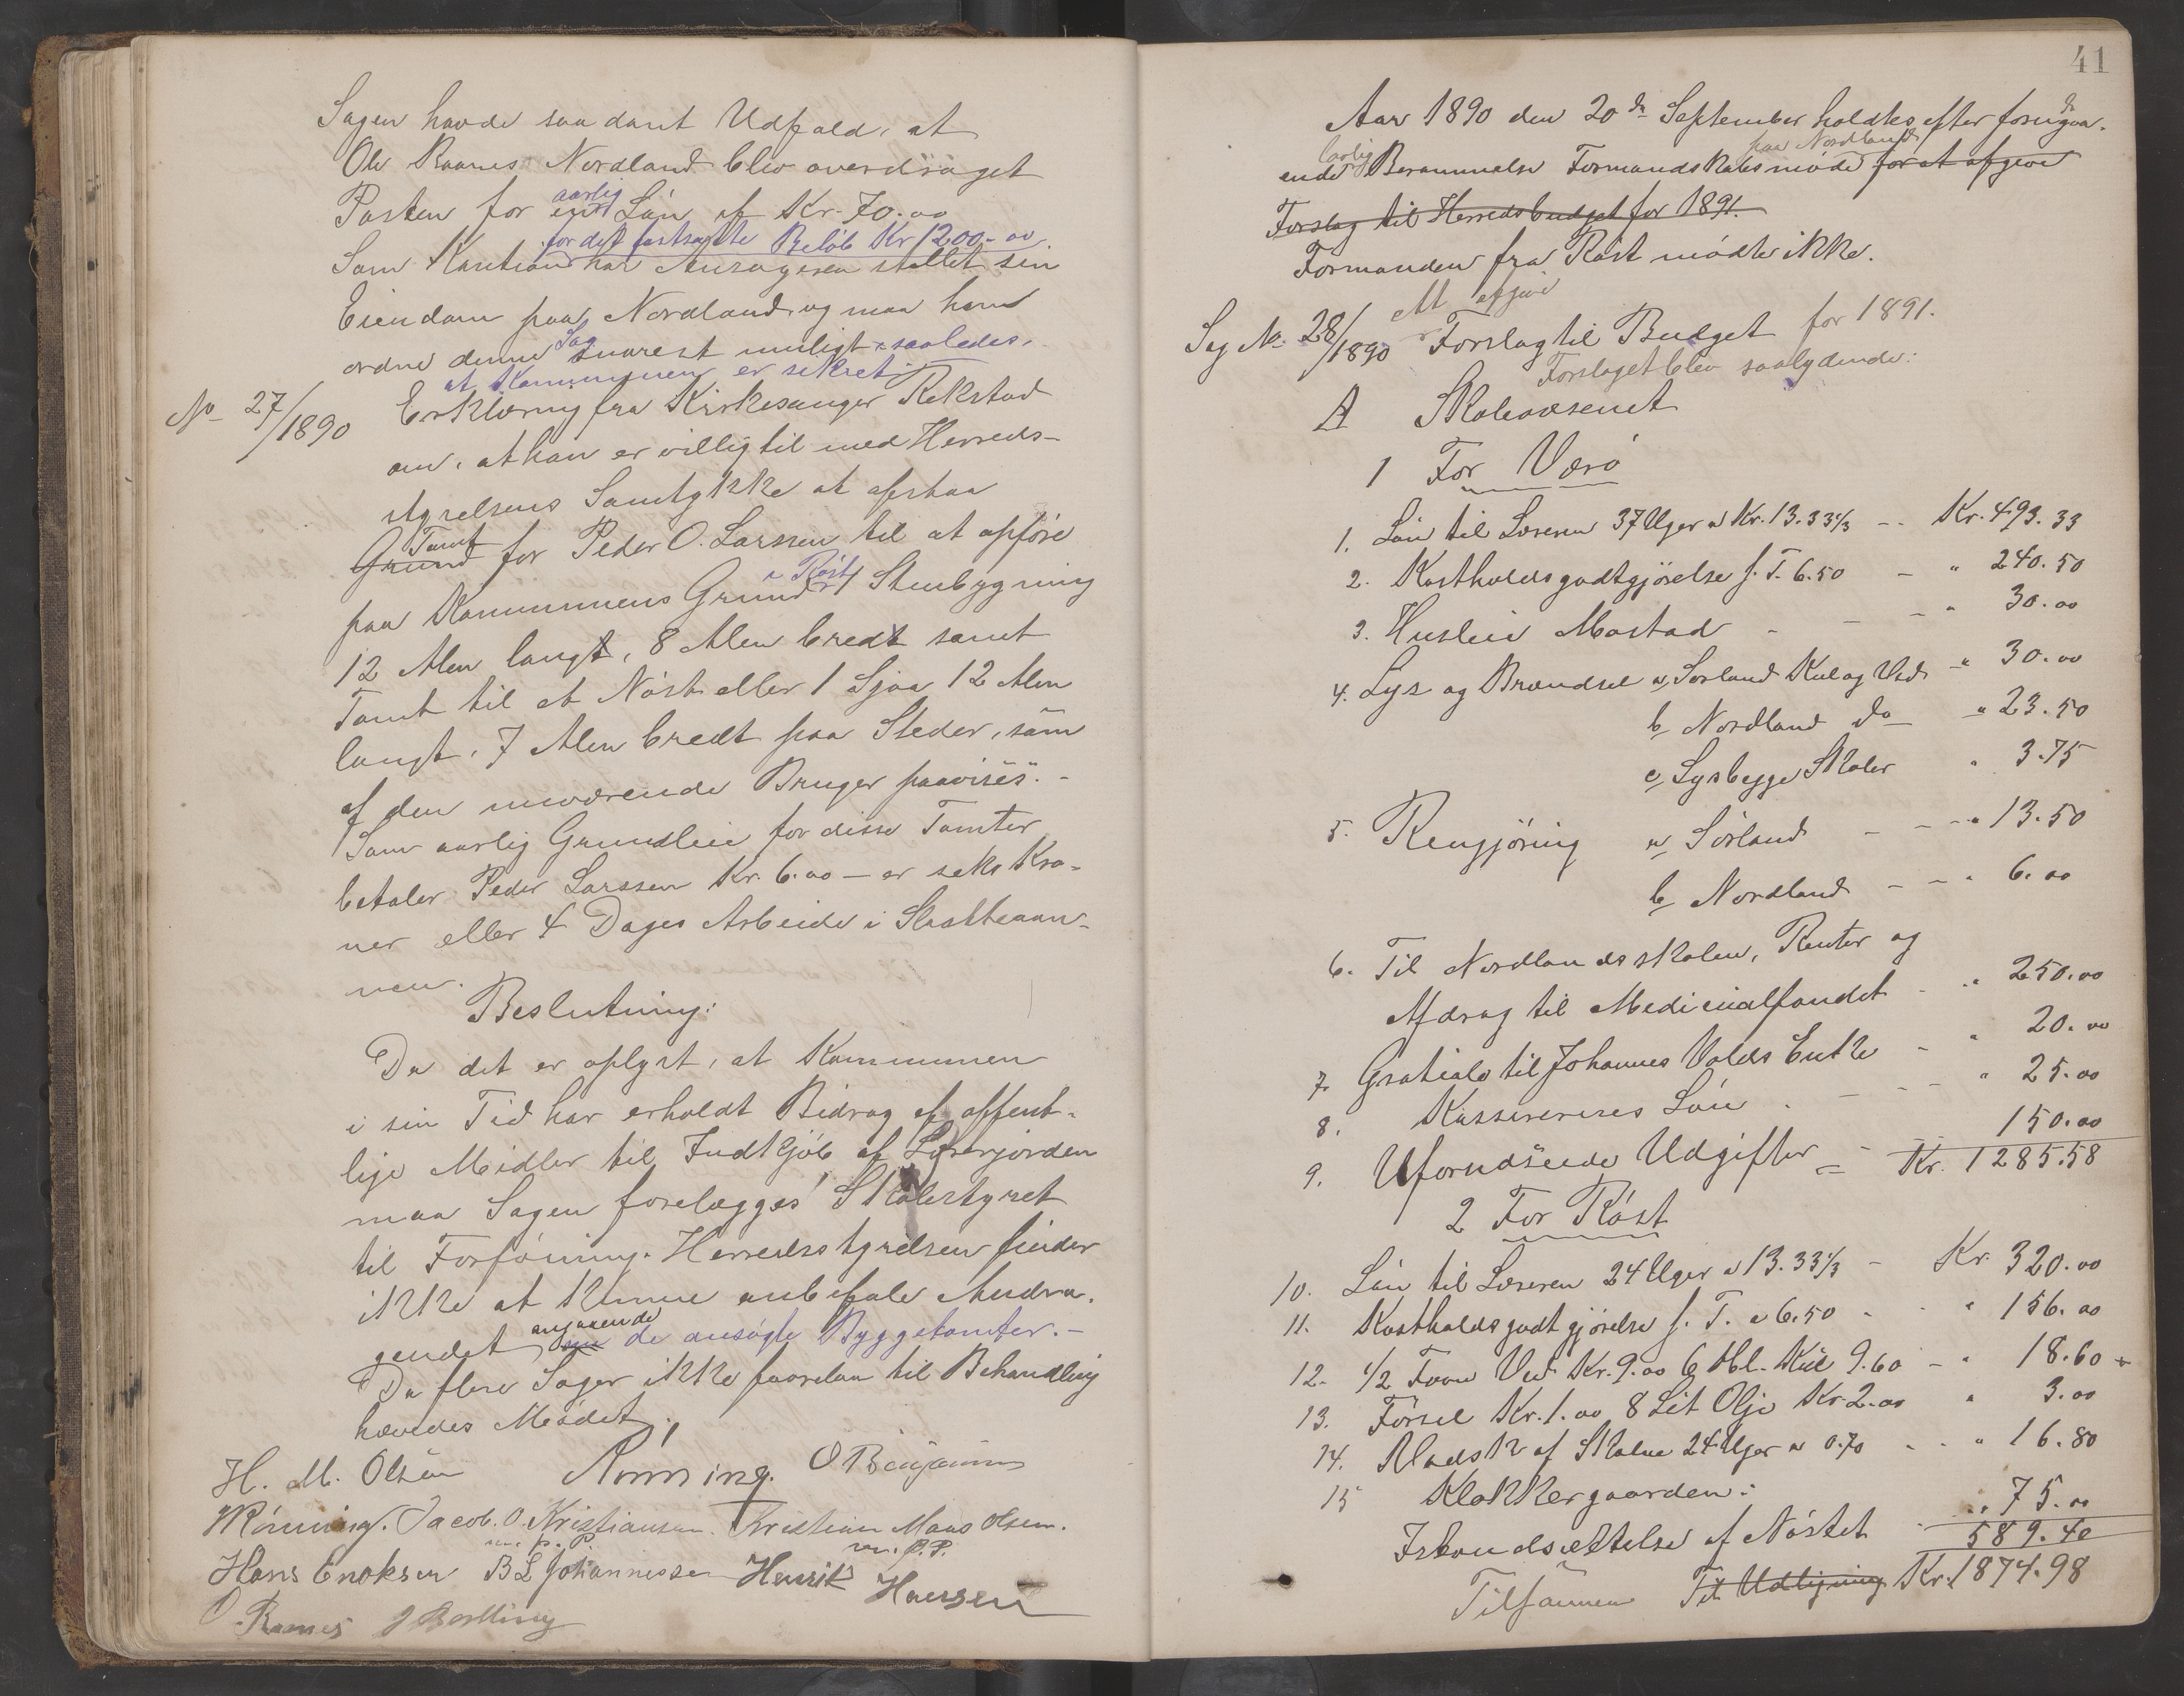 Sagen havde saadant Udfald, at
Ole Raanes Nordland blev overdraget
Posten for aarlig Lön af Kr. 70.00
for det fastsatte Beløb Kr 1200.00
Som Kaution har Ansøgeren stellet sin
Eiendom paa Nordland og maa han
ordne denne Sag snarest muligt saaledes,
at Kommunen er sikret.
No 27/1890 Erklæring fra Kirkesanger Rekstad
om, at han er villig til med Herreds-
styrelsens Samtykke at afstaa
Grund Tomt for Peder O. Larssen til at opføre
paa Kommunens Grund i Røst 1 Stenbygning
12 Alen langt, 8 Alen bredt samt
Tomt til et Nöst eller 1 Sjaa 12 Alen
langt, 7 Alen bredt paa Steder, som
af den nuværende Bruger paavises.-
Som aarlig Grundleie for disse Tomter
betaler Peder Larssen Kr. 6.00 - er seks Kro-
ner eller 4 Dages Arbeide i Slaatteaan-
nen.
Beslutning:
Da det er oplyst, at Kommunen
i sin Tid har erholdt Bidrag af offent-
lige Midler til Indkjøb af Lærerjorden
maa Sagen forelægges Skolestyret
til Forføining. Herredsstyrelsen finder
ikke at kunne anbefale Andra-
gendet om angaaende de ansøgte Byggetomter.-
Da flere Sager ikke forelaa til Behandling
hævedes Mødet.
H. M. Olsen Rönning. O Benjaminsen
MRönning. Jacob. O. Kristiansen. Kristian Maas Olsen.
m. p. P. m. p. P.
Hans Enoksen B L Johannessen Henrik Hanssen
O Raanes J Bolling
41
Aar 1890 den 20de September holdtes efter foregaa-
ende lovlig Berammelse Formandskabsmøde paa Nordland for at afgive
Forslag til Herredsbudget for 1891.
Formanden fra Røst mødte ikke.
At afgive
Sag No 28/1890 Forslag til Budget for 1891.
Forslaget blev saalydende:
A Skolevæsenet
1 For Værö
1. Lön til Læreren 37 Uger a Kr. 13.33 1/3 -- Kr. 493.33
2. Kostholdsgodtgjörelse f. T. 6.50 - " 240.50
3. Husleie Mostad - - - " 30.00
4. Lys og Brændsel a, Sørland Kul og Ved - " 30.00
b, Nordland do - " 23.50
c, Lys begge Skoler " 3.75
5. Rengjöring a, Sörland - - - " 13.50
b, Nordland - - " 6.00
6. Til Nordlandsskolen, Renter og
Afdrag til Medicinalfondet - " 250.00
7. Gratiale til Johannes Valds Enke - " 20.00
8. Kassererens Lön - - - " 25.00
9. Uforudseede Udgifter - - 150.00
Kr. 1285.58
2 For Röst
10. Lön til Læreren 24 Uger a 13.33 1/3 - Kr. 320.00
11. Kostholdsgodtgjörelse f. T. a 6.50 - " 156.00
12. 1/2 Favn Ved Kr. 9.00 6 Hbl. Kul 9.60 - " 18.60
13. Försel Kr. 1.00 8 Lit Olje Kr 2.00 " 3.00
14. Vadsk af Skolen 24 Uger a 0.70 - " 16.80
15 Klokkergaarden:
Istandsættelse af Nöstet " 75.00
589.40
Tilsammen Til Udligning Kr. 1874.98